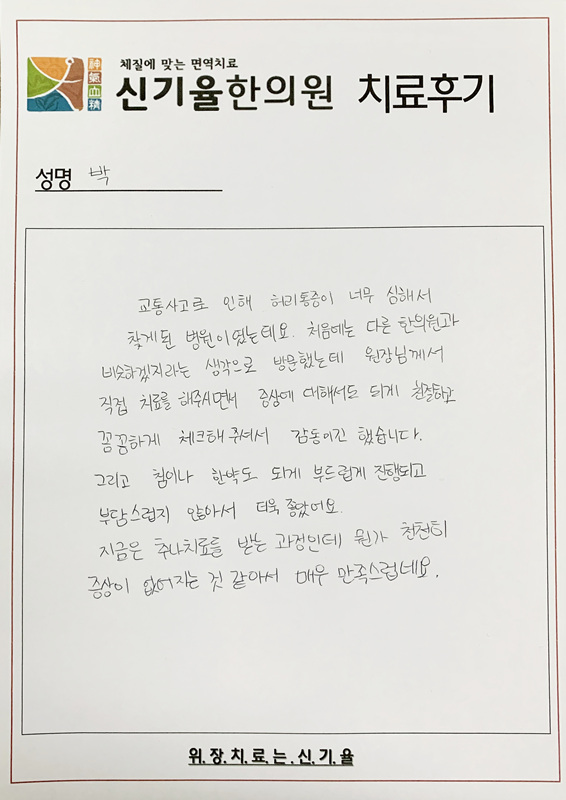 체질에 맞는 면역치료
神氣血精
신기율한의원 치료후기
성명 박
교통사고로 인해 허리통증이 너무 심해서
찾게된 병원이였는데요. 처음에는 다른 한의원과
비슷하겠지라는 생각으로 방문했는데 원장님께서
직접 치료를 해주시면서 증상에 대해서도 되게 친절하고
꼼꼼하게 체크해 주셔서 감동이긴 했습니다.
그리고 침이나 한약도 되게 부드럽게 진행되고
부담스럽지 않아서 더욱 좋았어요.
지금은 추나치료를 받는 과정인데 뭔가 천천히
증상이 없어지는 것 같아서 매우 만족스럽네요.
위.장.치.료.는.신.기.율